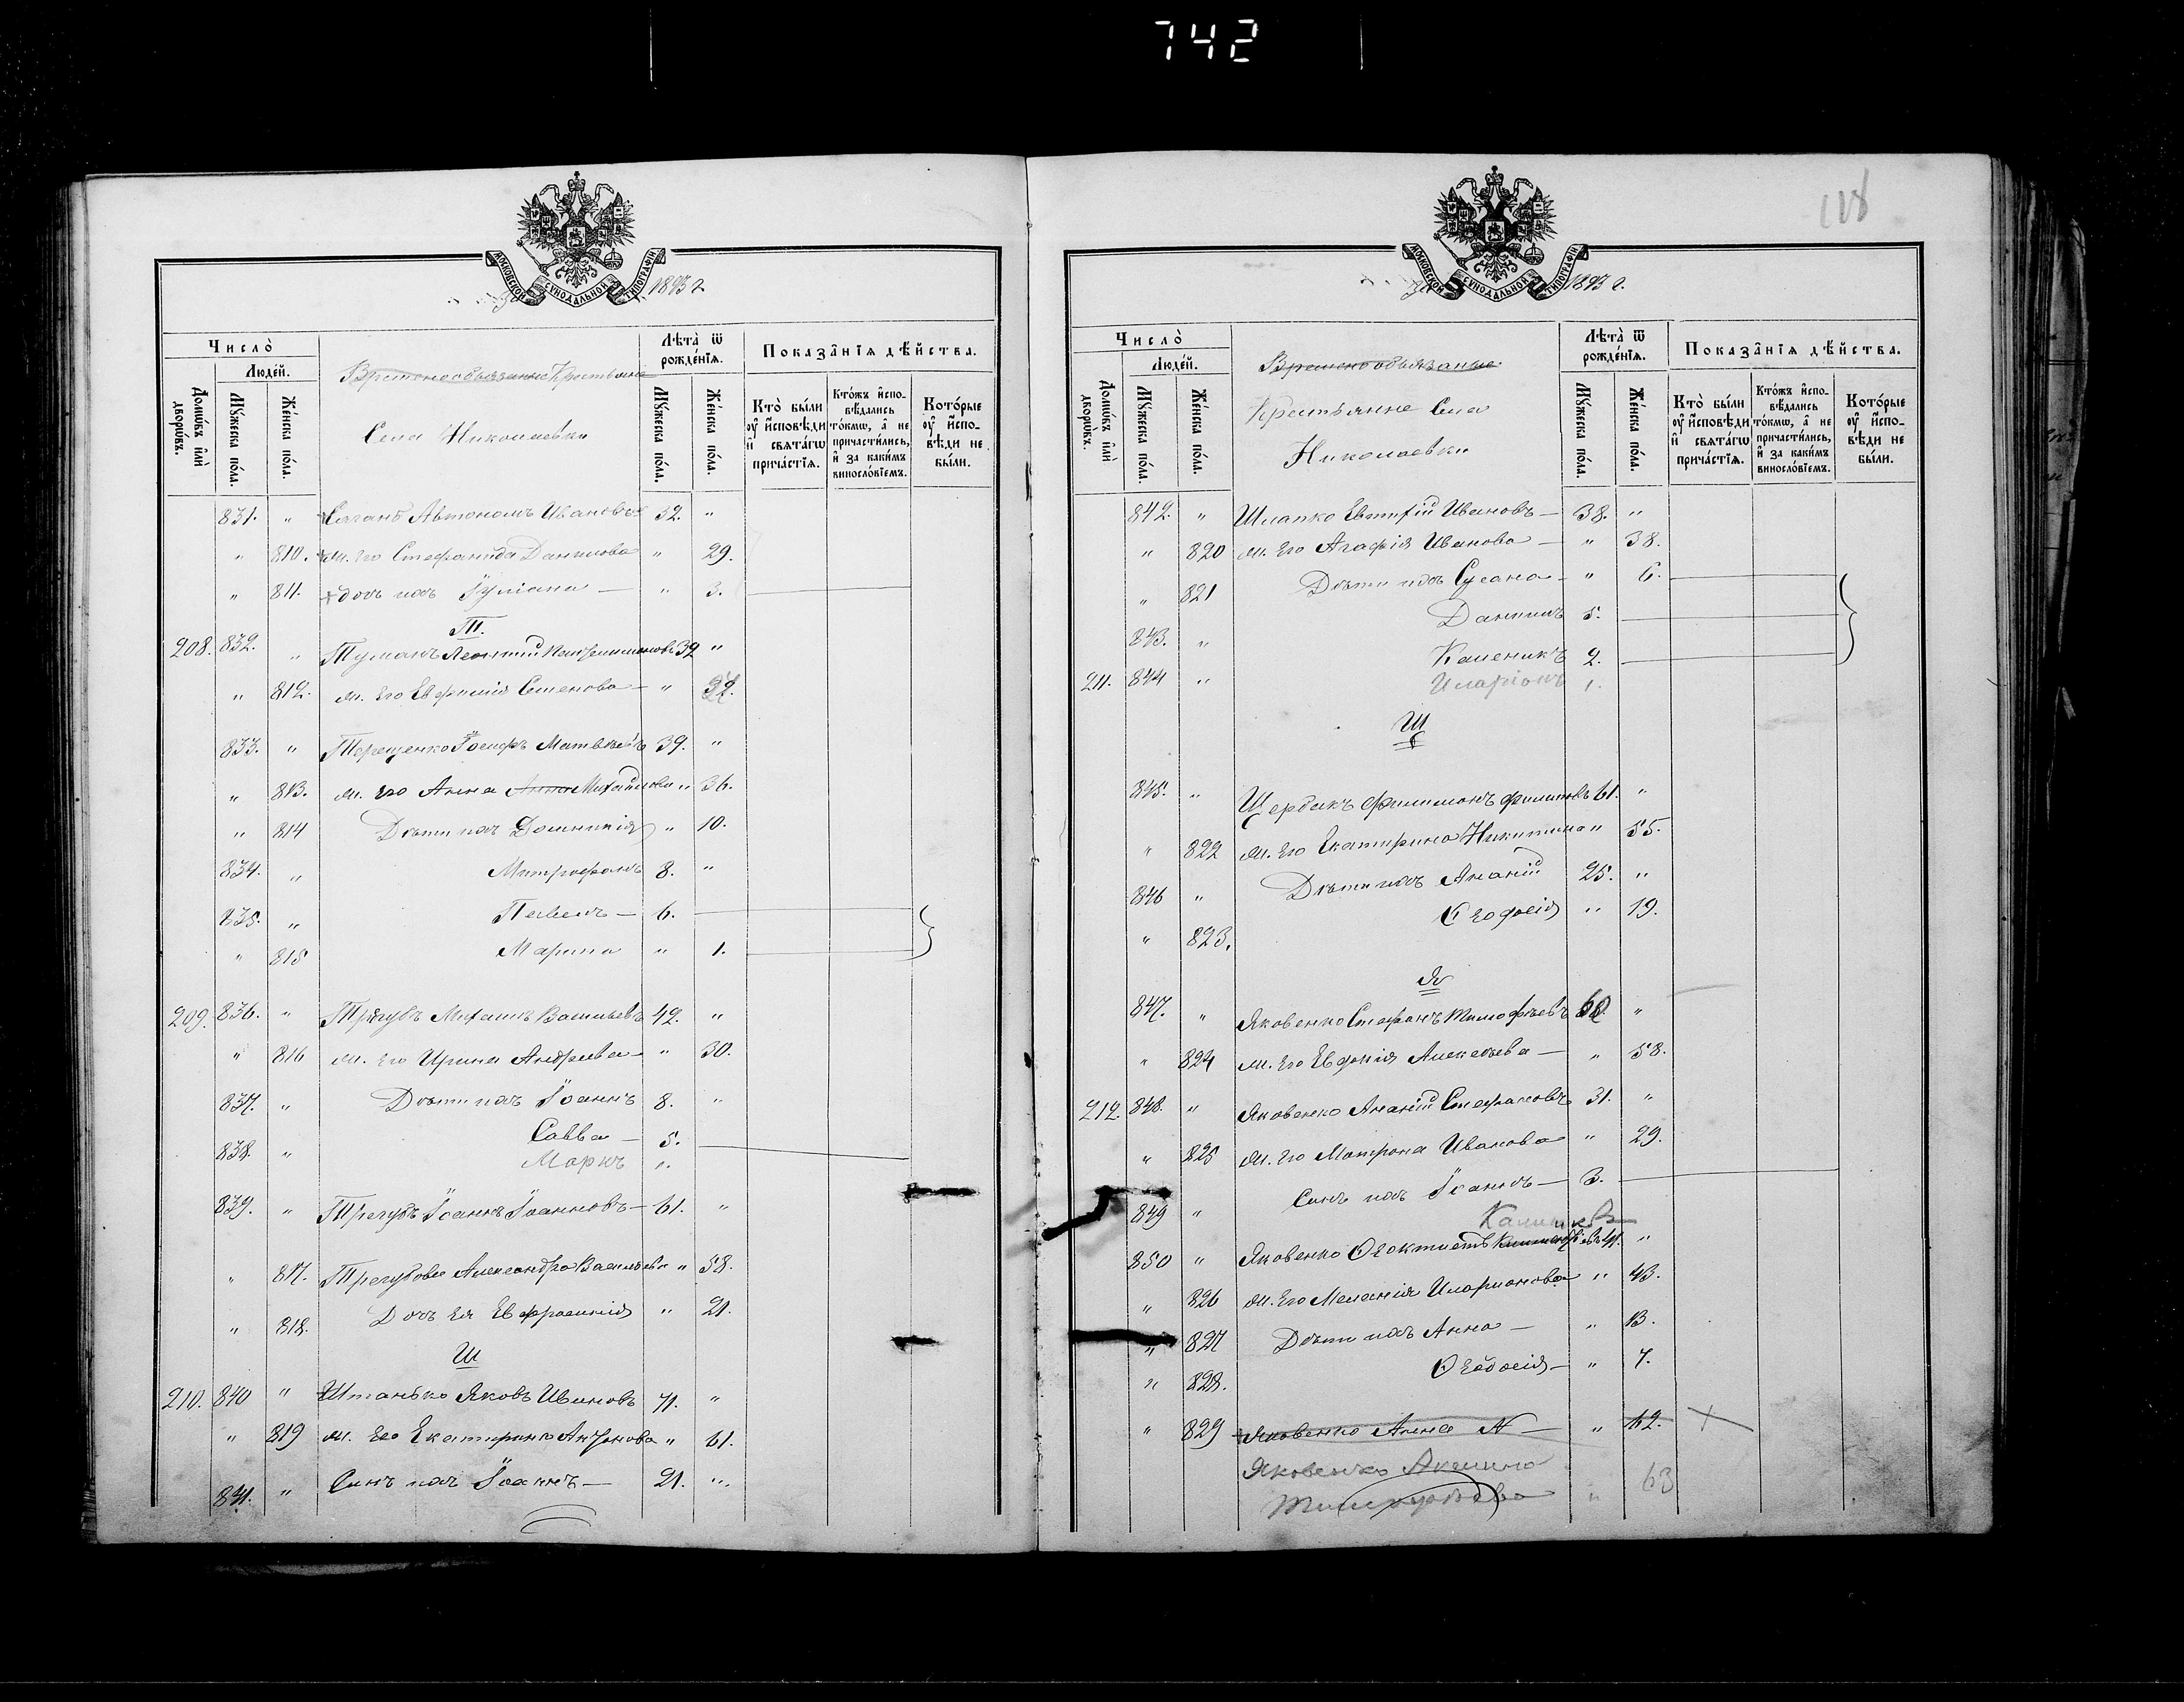 742
МОСКОВСКОЙ СѴНОДАЛЬНОЙ ТИПОГРАФІИ
1893 г.
Число̀
Людéй.
Домѡ́въ и҆лѝ дворѡ́въ.
Мꙋ́жеска по́ла.
Же́нска по́ла.
Временнообязанные Крестьяне
Села Николаевки
Лѣта̀ ѿ рожде́нїѧ.
Мꙋ́жеска по́ла.
Же́нска по́ла.
Показа̂нїѧ дѣ́йства.
Кто̀ бы́ли ᲂу҆ и҆́сповѣди и҆ свѧта́гѡ прича́стїѧ.
Кто́жъ и҆спо- вѣ́дались то́кмѡ, а҆ не причасти́лись, и҆ за каки́мъ винослóвїемъ.
Кото́рые ᲂу҆ и҆́спо- вѣди не бы́ли.
831. " Автономъ Ивановъ 32. "
" 810. ж. его Стефанида Данилова " 29.
" 811. дочь ихъ Іуліана — " 3.
Т.
208. 832. " Туманъ Леонтій 39 "
" 812. ж. его Евфимія Семенова — " 32.
833. " Терещенко Іосифъ Матвѣевъ 39. "
" 813. ж. его Анна Анна Михайлова " 36.
" 814 Дѣти ихъ Домникія " 10.
834. " Митрофанъ 8. "
835. " Павелъ — 6.
" 815 Марина " 1.
209. 836. " Трегубъ Михаилъ Васильевъ 42. "
" 816 ж. его Ирина Андреева — " 30.
837. " Дѣти ихъ Іоаннъ 8. "
838. " Савва — 5.
Маркъ 1.
839. " Трегубъ Іоаннъ Іоанновъ — 61. "
" 817. Трегубова Александра Васильева " 58.
" 818. Дочь ея Евфросинія " 21.
Ш
210. 840 " Штанько Яковъ Ивановъ 71. "
" 819 ж. его Екатерина Антонова " 61.
841. " Сынъ ихъ Іоаннъ — 21. "
118
МОСКОВСКОЙ СѴНОДАЛЬНОЙ ТИПОГРАФІИ
1893 г.
Число̀
Людéй.
Домѡ́въ и҆лѝ дворѡ́въ.
Мꙋ́жеска по́ла.
Же́нска по́ла.
Временнообязанные
Крестьянне Села
Николаевки
Лѣта̀ ѿ рожде́нїѧ.
Мꙋ́жеска по́ла.
Же́нска по́ла.
Показа̂нїѧ дѣ́йства.
Кто̀ бы́ли ᲂу҆ и҆́сповѣди и҆ свѧта́гѡ прича́стїѧ.
Кто́жъ и҆спо- вѣ́дались то́кмѡ, а҆ не причасти́лись, и҆ за каки́мъ винослóвїемъ.
Кото́рые ᲂу҆ и҆́спо- вѣди не бы́ли.
842. " Шлапко Евтихій Ивановъ — 38. "
" 820 ж. его Агафія Иванова — " 38.
" 821 Дѣти ихъ Сусана — " 6.
843. " Даніилъ 5.
211. 844 " Каленикъ 2.
Иларіонъ 1.
Щ
845. " Щербакъ Филимонъ Филиповъ 61. "
" 822 ж. его Екатерина Никитина " 55.
846 " Дѣти ихъ Ананій 25. "
" 823. Ѳеодосія " 19.
Я
847. " Яковенко Стефанъ Тимофѣевъ 62 "
" 824 ж. его Евдокія Алексѣева — " 58.
212. 848. " Яковенко Ананій Стефановъ 31. "
" 825 ж. его Матрона Иванова " 29.
849 " Сынъ ихъ Іоаннъ — 3.
850 " Яковенко Ѳеоктистъ 41. "
" 826 ж. его Меланія Иларионова " 43.
" 827 Дѣти ихъ Анна — " 13.
" 828. Ѳеодосія — " 7.
" 829 Яковенко Анна N — " 62.
Яковенко Акилина
" 63